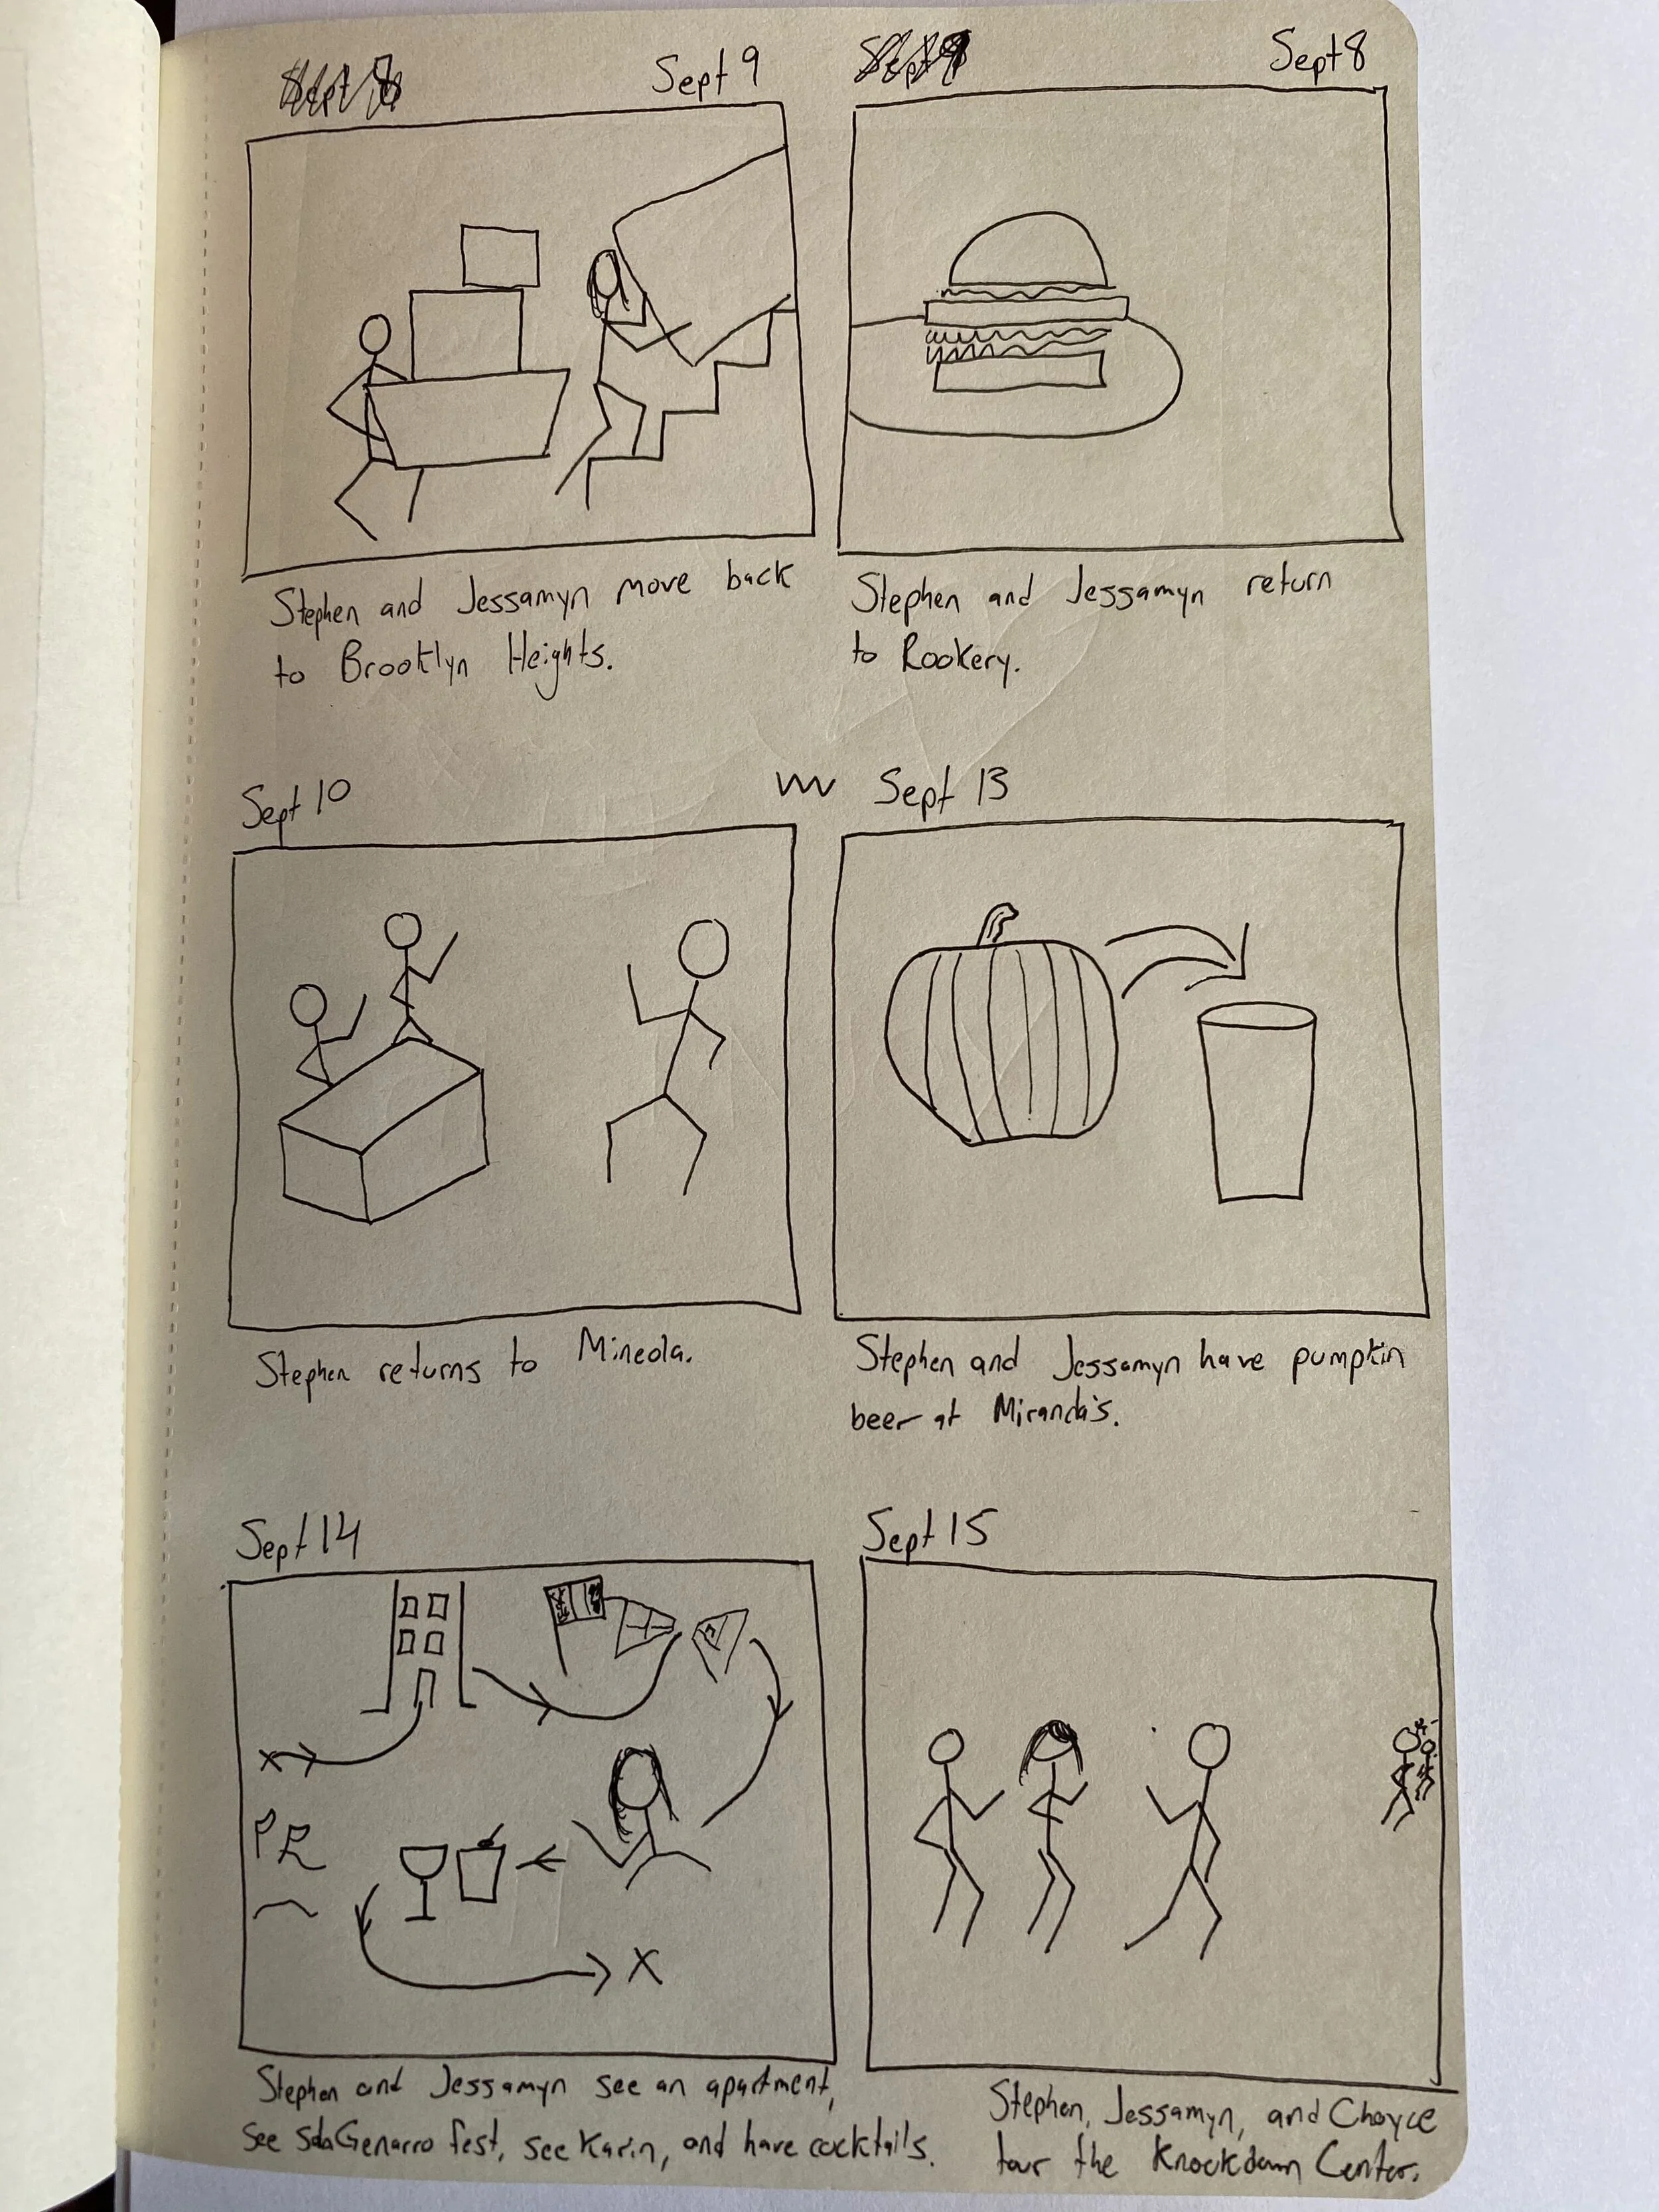 Sept 8 Sept 9
Sept 9 Sept 8
Stephen and Jessamyn move back
to Brooklyn Heights.
Stephen and Jessamyn return
to Rookery.
Sept 10
Sept 13
Stephen returns to Mineola.
Stephen and Jessamyn have pumpkin
beer at Miranda's.
Sept 14
Sept 15
Stephen and Jessamyn see an apartment,
see SdaGenarro fest, see Karin, and have cocktails.
Stephen, Jessamyn, and Choyce
tour the Knockdown Center.